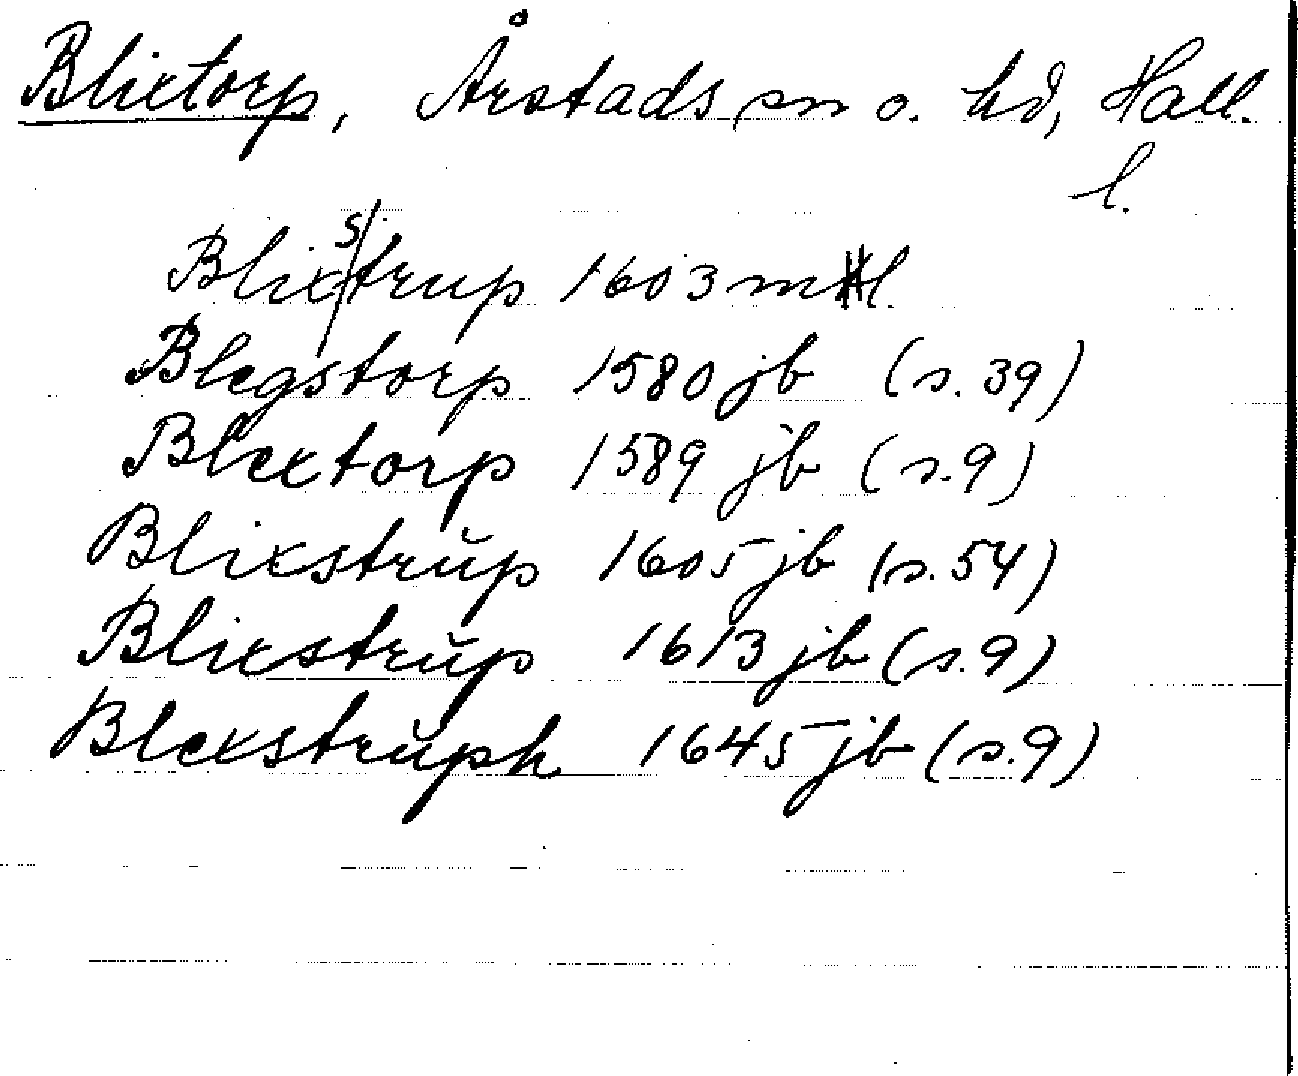 Blixtorp, Årstads sn o. hd, Hall.
l.
Blixstrup 1603 mtl.
Blegstorp 1580 jb (s. 39)
Blextorp 1589 jb (s. 9)
Blixstrŭp 1605 jb (s. 54)
Blixstrŭp 1613 jb (s. 9)
Blexstrŭph 1645 jb (s. 9)